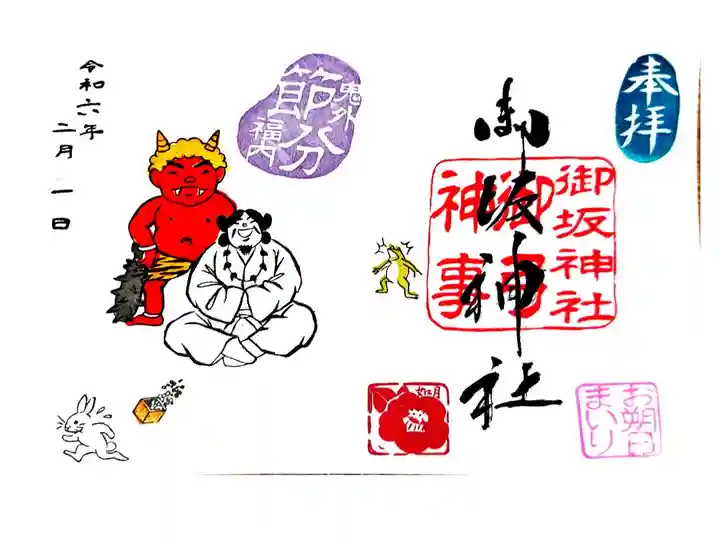 奉拝
御坂神社
御坂神社
御司
神事
お朔日
まいり
如月
節分
鬼外
福内
令和六年
二月一日